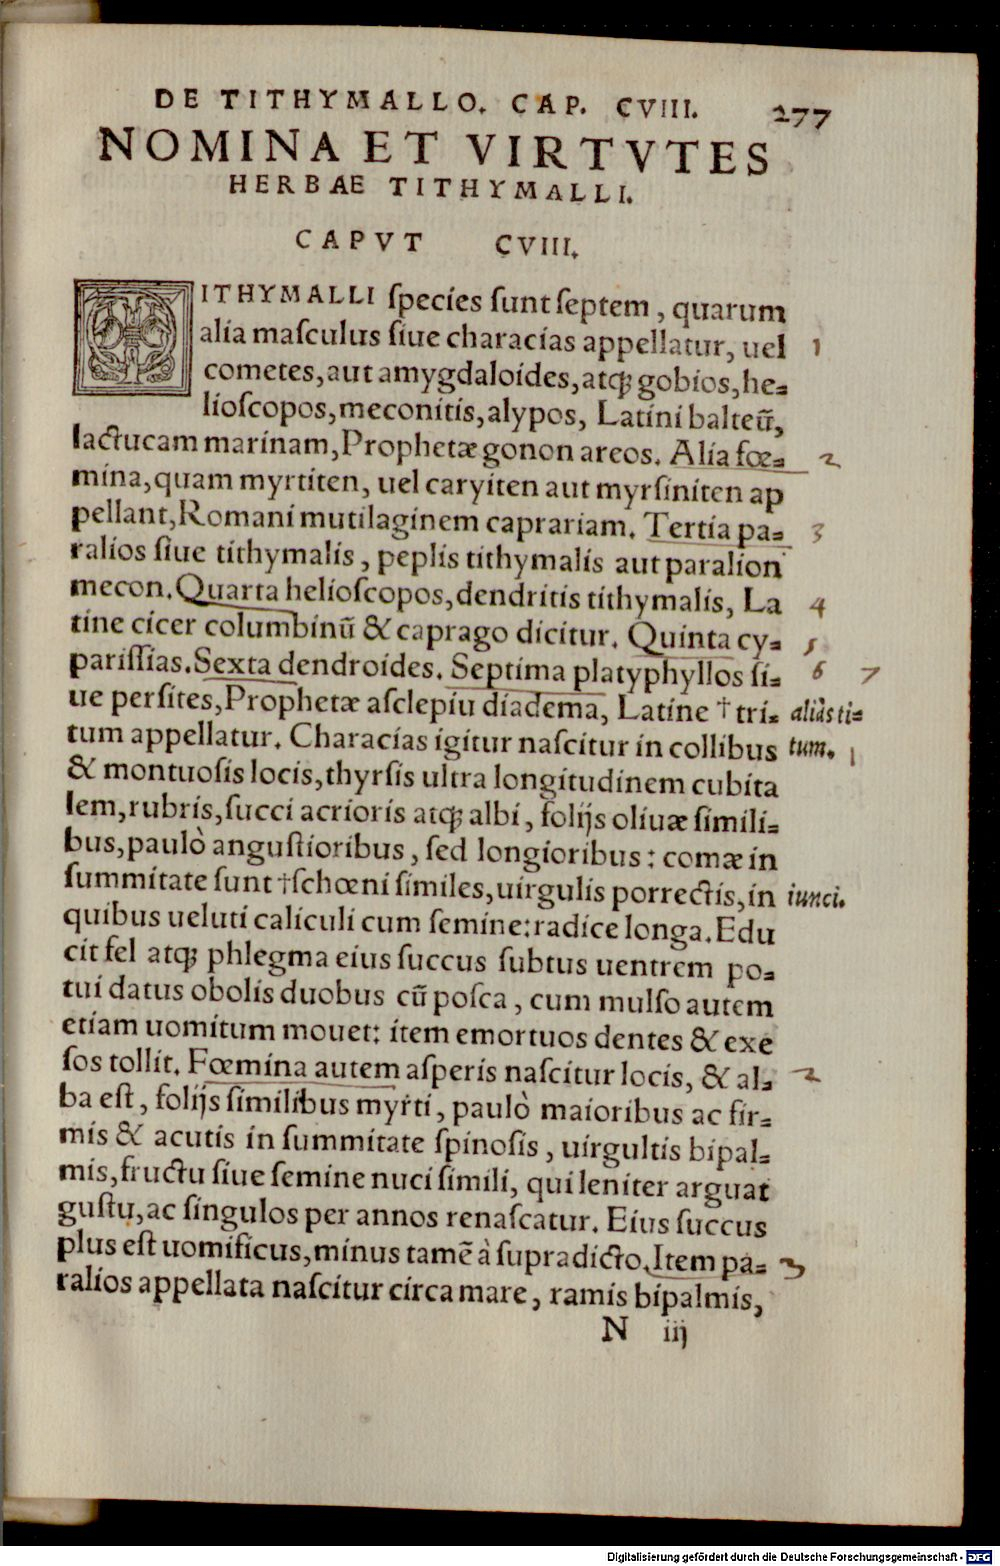 DE TITHYMALLO. CAP. CVIII. 277
NOMINA ET VIRTVTES
HERBAE TITHYMALLI.
CAPVT CVIII.
TITHYMALLI ſpecies ſunt ſeptem, quarum
alia maſculus ſiue characias appellatur, uel 1
cometes, aut amygdaloides, atqꝫ gobios, he=
lioſcopos, meconitis, alypos, Latini balteū,
lactucam marinam, Prophetæ gonon areos. Alia fœ= 2
mina, quam myrtiten, uel caryiten aut myrſiniten ap
pellant, Romani mutilaginem caprariam. Tertia pa= 3
ralios ſiue tithymalis, peplis tithymalis aut paralion
mecon. Quarta helioſcopos, dendritis tithymalis, La 4
tine cicer columbinū & caprago dicitur. Quinta cy= 5
pariſſias. Sexta dendroides. Septima platyphyllos ſi= 6 7
ue perſites, Prophetæ aſclepiu diadema, Latine † tri= aliâs ti=
tum appellatur. Characias igitur naſcitur in collibus tum. 1
& montuoſis locis, thyrſis ultra longitudinem cubita
lem, rubris, ſucci acrioris atqꝫ albi, folijs oliuæ ſimili=
bus, paulò anguſtioribus, ſed longioribus: comæ in
ſummitate ſunt † ſchœni ſimiles, uirgulis porrectis, in iunci.
quibus ueluti caliculi cum ſemine: radice longa. Edu
cit fel atqꝫ phlegma eius ſuccus ſubtus uentrem po=
tui datus obolis duobus cū poſca, cum mulſo autem
etiam uomitum mouet: item emortuos dentes & exe
ſos tollit. Fœmina autem aſperis naſcitur locis, & al= 2
ba eſt, folijs ſimilibus myrti, paulò maioribus ac fir=
mis & acutis in ſummitate ſpinoſis, uirgultis bipal=
mis, fructu ſiue ſemine nuci ſimili, qui leniter arguat
guſtu, ac ſingulos per annos renaſcatur. Eius ſuccus
plus eſt uomificus, minus tamē à ſupradicto. Item pa= 3
ralios appellata naſcitur circa mare, ramis bipalmis,
N iij
Digitalisierung gefördert durch die Deutsche Forschungsgemeinschaft - DFG